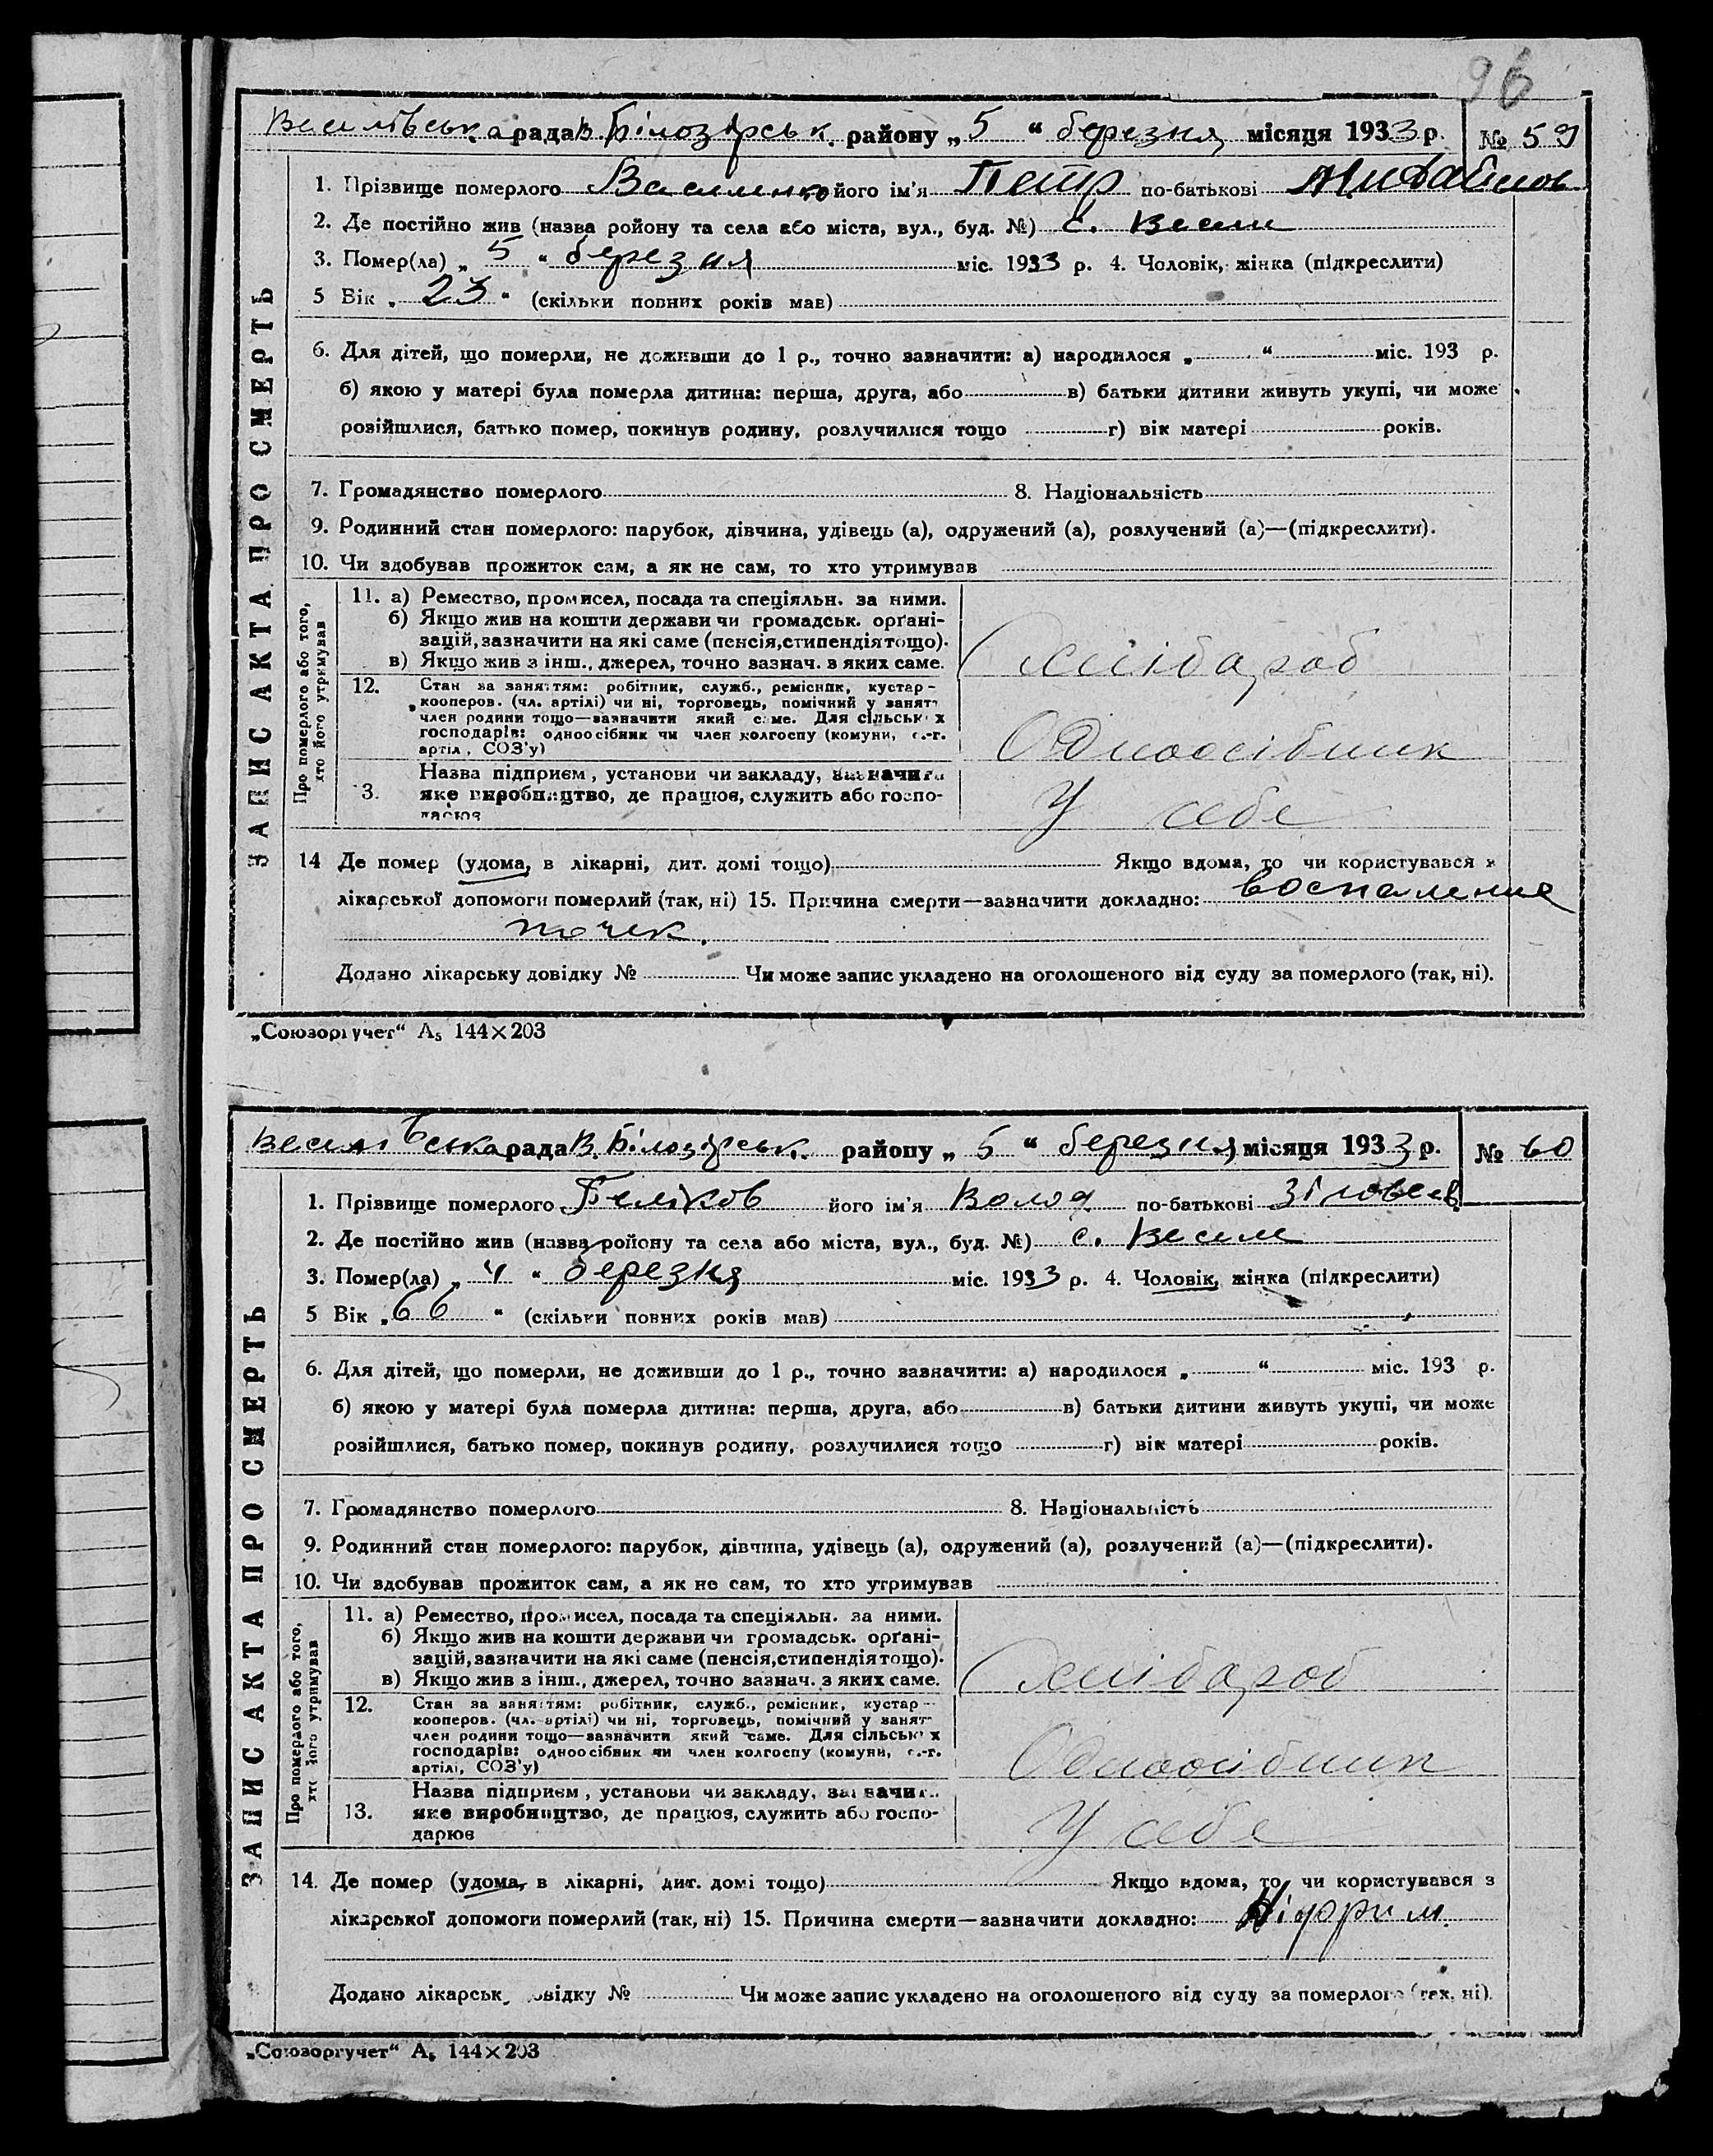 96
рада В. Білозірськ. району „ 5 “ березня місяця 1933 р. № 59
ЗАПИС АКТА ПРО СМЕРТЬ
1. Прізвище померлого Василенко його ім'я Петр по-батькові
2. Де постійно жив (назва району та села або міста, вул., буд. №) с. Весели
3. Помер(ла) „ 5 “ березня міс. 1933 р. 4. Чоловік, жінка (підкреслити)
5 Вік „ 23 “ (скільки повних років мав)
6. Для дітей, що померли, не доживши до 1 р., точно зазначити: а) народилося „ “ міс. 193 р.
б) якою у матері була померла дитина: перша, друга, або в) батьки дитини живуть укупі, чи може
розійшлися, батько помер, покинув родину, розлучилися тощо г) вік матері років.
7. Громадянство померлого 8. Національність
9. Родинний стан померлого: парубок, дівчина, удівець (а), одружений (а), розлучений (а)—(підкреслити).
10. Чи здобував прожиток сам, а як не сам, то хто утримував
Про померлого або того, хто його утримував
11. а) Ремество, промисел, посада та спеціяльн. за ними.
б) Якщо жив на кошти держави чи громадськ. орґані-
зацій, зазначити на які саме (пенсія, стипендія тощо).
в) Якщо жив з інш., джерел, точно зазнач. з яких саме.
Хлібароб
12. Стан за заняттям: робітник, служб., ремісник, кустар-
кооперов. (чл. артілі) чи ні, торговець, помічний у занят
член родини тощо—зазначити який саме. Для сільськ х
господарів: одноосібник чи член колгоспу (комуни, с.-г.
артіл, СОЗ'у)
Одноосібник
3. Назва підприєм, установи чи закладу, зазначити
яке виробництво, де працює, служить або госпо-
дарює
У себе
14 Де помер (удома, в лікарні, дит. домі тощо) Якщо вдома, то чи користувався з
лікарської допомоги померлий (так, ні) 15. Причина смерти—зазначити докладно: воспаление
почек.
Додано лікарську довідку № Чи може запис укладено на оголошеного від суду за померлого (так, ні).
„Союзоргучет“ А₅ 144×203
рада В. Білозірськ. району „ 5 “ березня місяця 1933 р. № 60
ЗАПИС АКТА ПРО СМЕРТЬ
1. Прізвище померлого Беліков його ім'я Волод по-батькові
2. Де постійно жив (назва району та села або міста, вул., буд. №) с. Весели
3. Помер(ла) „ 4 “ березня міс. 1933 р. 4. Чоловік, жінка (підкреслити)
5 Вік „ 66 “ (скільки повних років мав)
6. Для дітей, що померли, не доживши до 1 р., точно зазначити: а) народилося „ “ міс. 193 р.
б) якою у матері була померла дитина: перша, друга, або в) батьки дитини живуть укупі, чи може
розійшлися, батько помер, покинув родину, розлучилися тощо г) вік матері років.
7. Громадянство померлого 8. Національність
9. Родинний стан померлого: парубок, дівчина, удівець (а), одружений (а), розлучений (а)—(підкреслити).
10. Чи здобував прожиток сам, а як не сам, то хто утримував
Про померлого або того, хто його утримував
11. а) Ремество, промисел, посада та спеціяльн. за ними.
б) Якщо жив на кошти держави чи громадськ. орґані-
зацій, зазначити на які саме (пенсія, стипендія тощо).
в) Якщо жив з інш., джерел, точно зазнач. з яких саме.
Хлібароб
12. Стан за заняттям: робітник, служб., ремісник, кустар-
кооперов. (чл. артілі) чи ні, торговець, помічний у занят
член родини тощо—зазначити який саме. Для сільськ х
господарів: одноосібник чи член колгоспу (комуни, с.-г.
артілі, СОЗ'у)
Одноосібник
13. Назва підприєм, установи чи закладу, зазначит
яке виробництво, де працює, служить або госпо-
дарює
У себе
14. Де помер (удома, в лікарні, дит. домі тощо) Якщо вдома, то чи користувався з
лікарської допомоги померлий (так, ні) 15. Причина смерти—зазначити докладно:
Додано лікарськ овідку № Чи може запис укладено на оголошеного від суду за померлого (так, ні).
„Союзоргучет“ А₅ 144×203